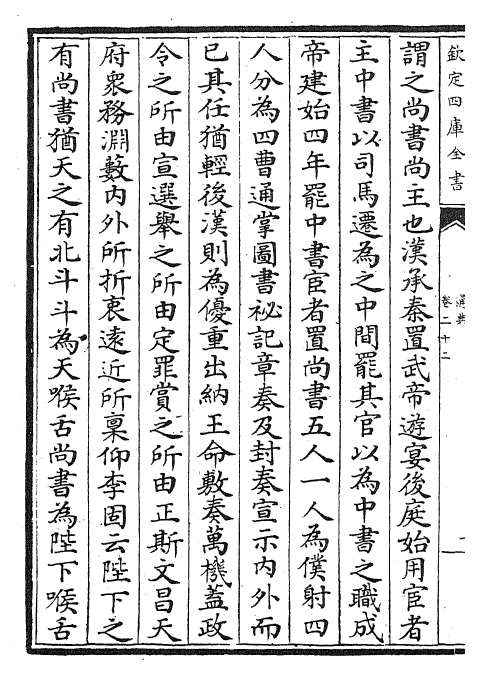 欽定四庫全書
通典
卷二十二
謂之尚書尚主也漢承秦置武帝遊宴後庭始用宦者
主中書以司馬遷為之中間罷其官以為中書之職成
帝建始四年罷中書宦者置尚書五人一人為僕射四
人分為四曹通掌圖書祕記章奏及封奏宣示內外而
已其任猶輕後漢則為優重出納王命敷奏萬機蓋政
令之所由宣選舉之所由定罪賞之所由正斯文昌天
府衆務淵藪內外所折衷遠近所稟仰李固云陛下之
有尚書猶天之有北斗斗為天喉舌尚書為陛下喉舌